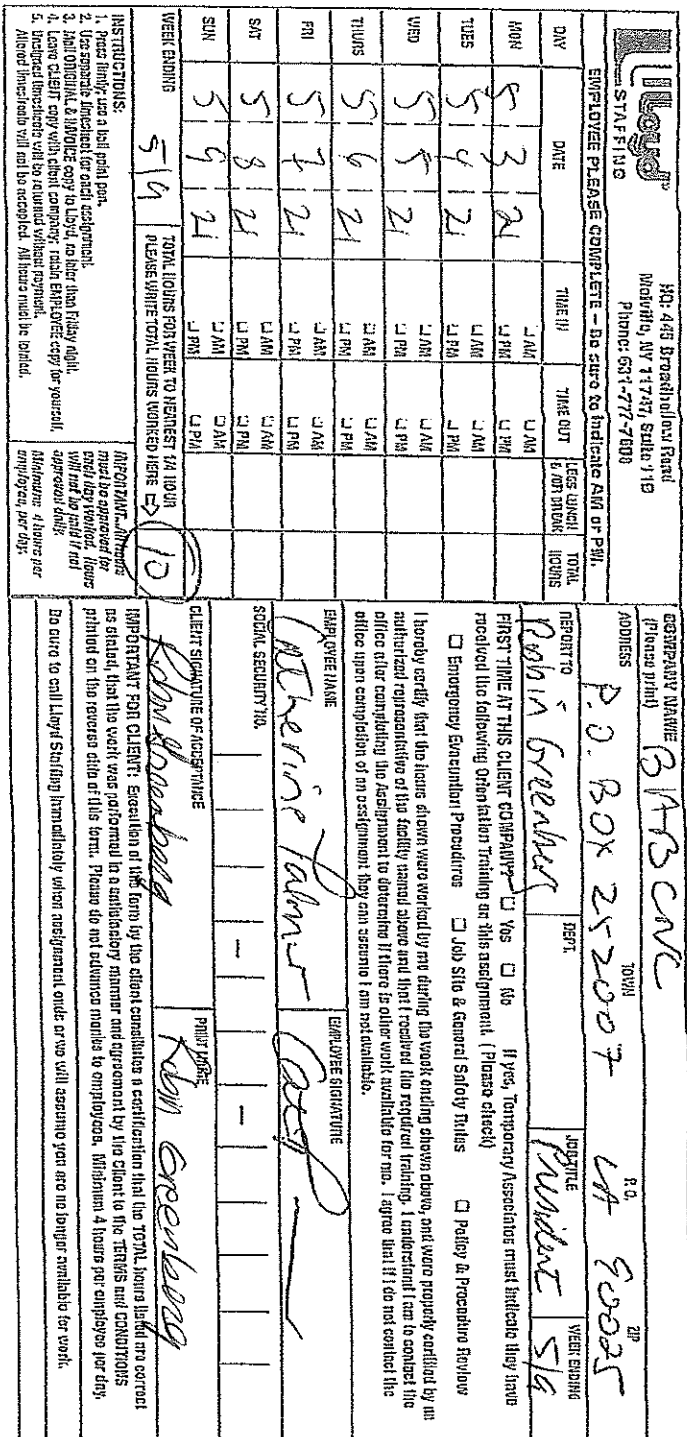 Lloyd®
STAFFING
HQ: 445 Broadhollow Road
Melville, NY 11747, Suite 119
Phone: 631-777-7600
EMPLOYEE PLEASE COMPLETE – Be sure to indicate AM or PM.
DAY DATE TIME IN TIME OUT LESS LUNCH & /OR BREAK TOTAL HOURS
MON 5 3 21 AM PM AM PM
TUES 5 4 21 AM PM AM PM
WED 5 5 21 AM PM AM PM
THURS 5 6 21 AM PM AM PM
FRI 5 7 21 AM PM AM PM
SAT 5 8 21 AM PM AM PM
SUN 5 9 21 AM PM AM PM
WEEK ENDING 5/9 TOTAL HOURS FOR WEEK TO NEAREST 1/4 HOUR
PLEASE WRITE TOTAL HOURS WORKED HERE ⇨ 10
INSTRUCTIONS:
1. Press firmly; use a ball point pen.
2. Use separate timesheet for each assignment.
3. Mail ORIGINAL & INVOICE copy to Lloyd, no later than Friday night.
4. Leave CLIENT copy with client company; retain EMPLOYEE copy for yourself.
5. Unsigned timesheets will be returned without payment.
Altered timesheets will not be accepted. All hours must be totaled.
IMPORTANT: All hours
must be approved for
each day worked. Hours
will not be paid if not
approved daily.
Minimum: 4 hours per
employee, per day.
COMPANY NAME BABCNC
(Please print)
ADDRESS TOWN P.O. ZIP
P.O. BOX 252007 LA 90025
REPORT TO DEPT. JOB TITLE WEEK ENDING
Robin Greenberg President 5/9
FIRST TIME AT THIS CLIENT COMPANY? ☐ Yes ☐ No If yes, Temporary Associates must indicate they have
received the following Orientation Training on this assignment. (Please check)
☐ Emergency Evacuation Procedures ☐ Job Site & General Safety Rules ☐ Policy & Procedure Review
I hereby certify that the hours shown were worked by me during the week ending shown above, and were properly certified by an
authorized representative of the facility named above and that I received the required training. I understand I am to contact the
office after completing the Assignment to determine if there is other work available for me. I agree that if I do not contact the
office upon completion of an assignment they can assume I am not available.
EMPLOYEE NAME EMPLOYEE SIGNATURE
Catherine Palmer
SOCIAL SECURITY NO.
CLIENT SIGNATURE OF ACCEPTANCE PRINT NAME
Robin Greenberg Robin Greenberg
IMPORTANT FOR CLIENT: Execution of this form by the client constitutes a certification that the TOTAL hours listed are correct
as stated, that the work was performed in a satisfactory manner and agreement by the Client to the TERMS and CONDITIONS
printed on the reverse side of this form. Please do not advance monies to employees. Minimum 4 hours per employee per day.
Be sure to call Lloyd Staffing immediately when assignment ends or we will assume you are no longer available for work.